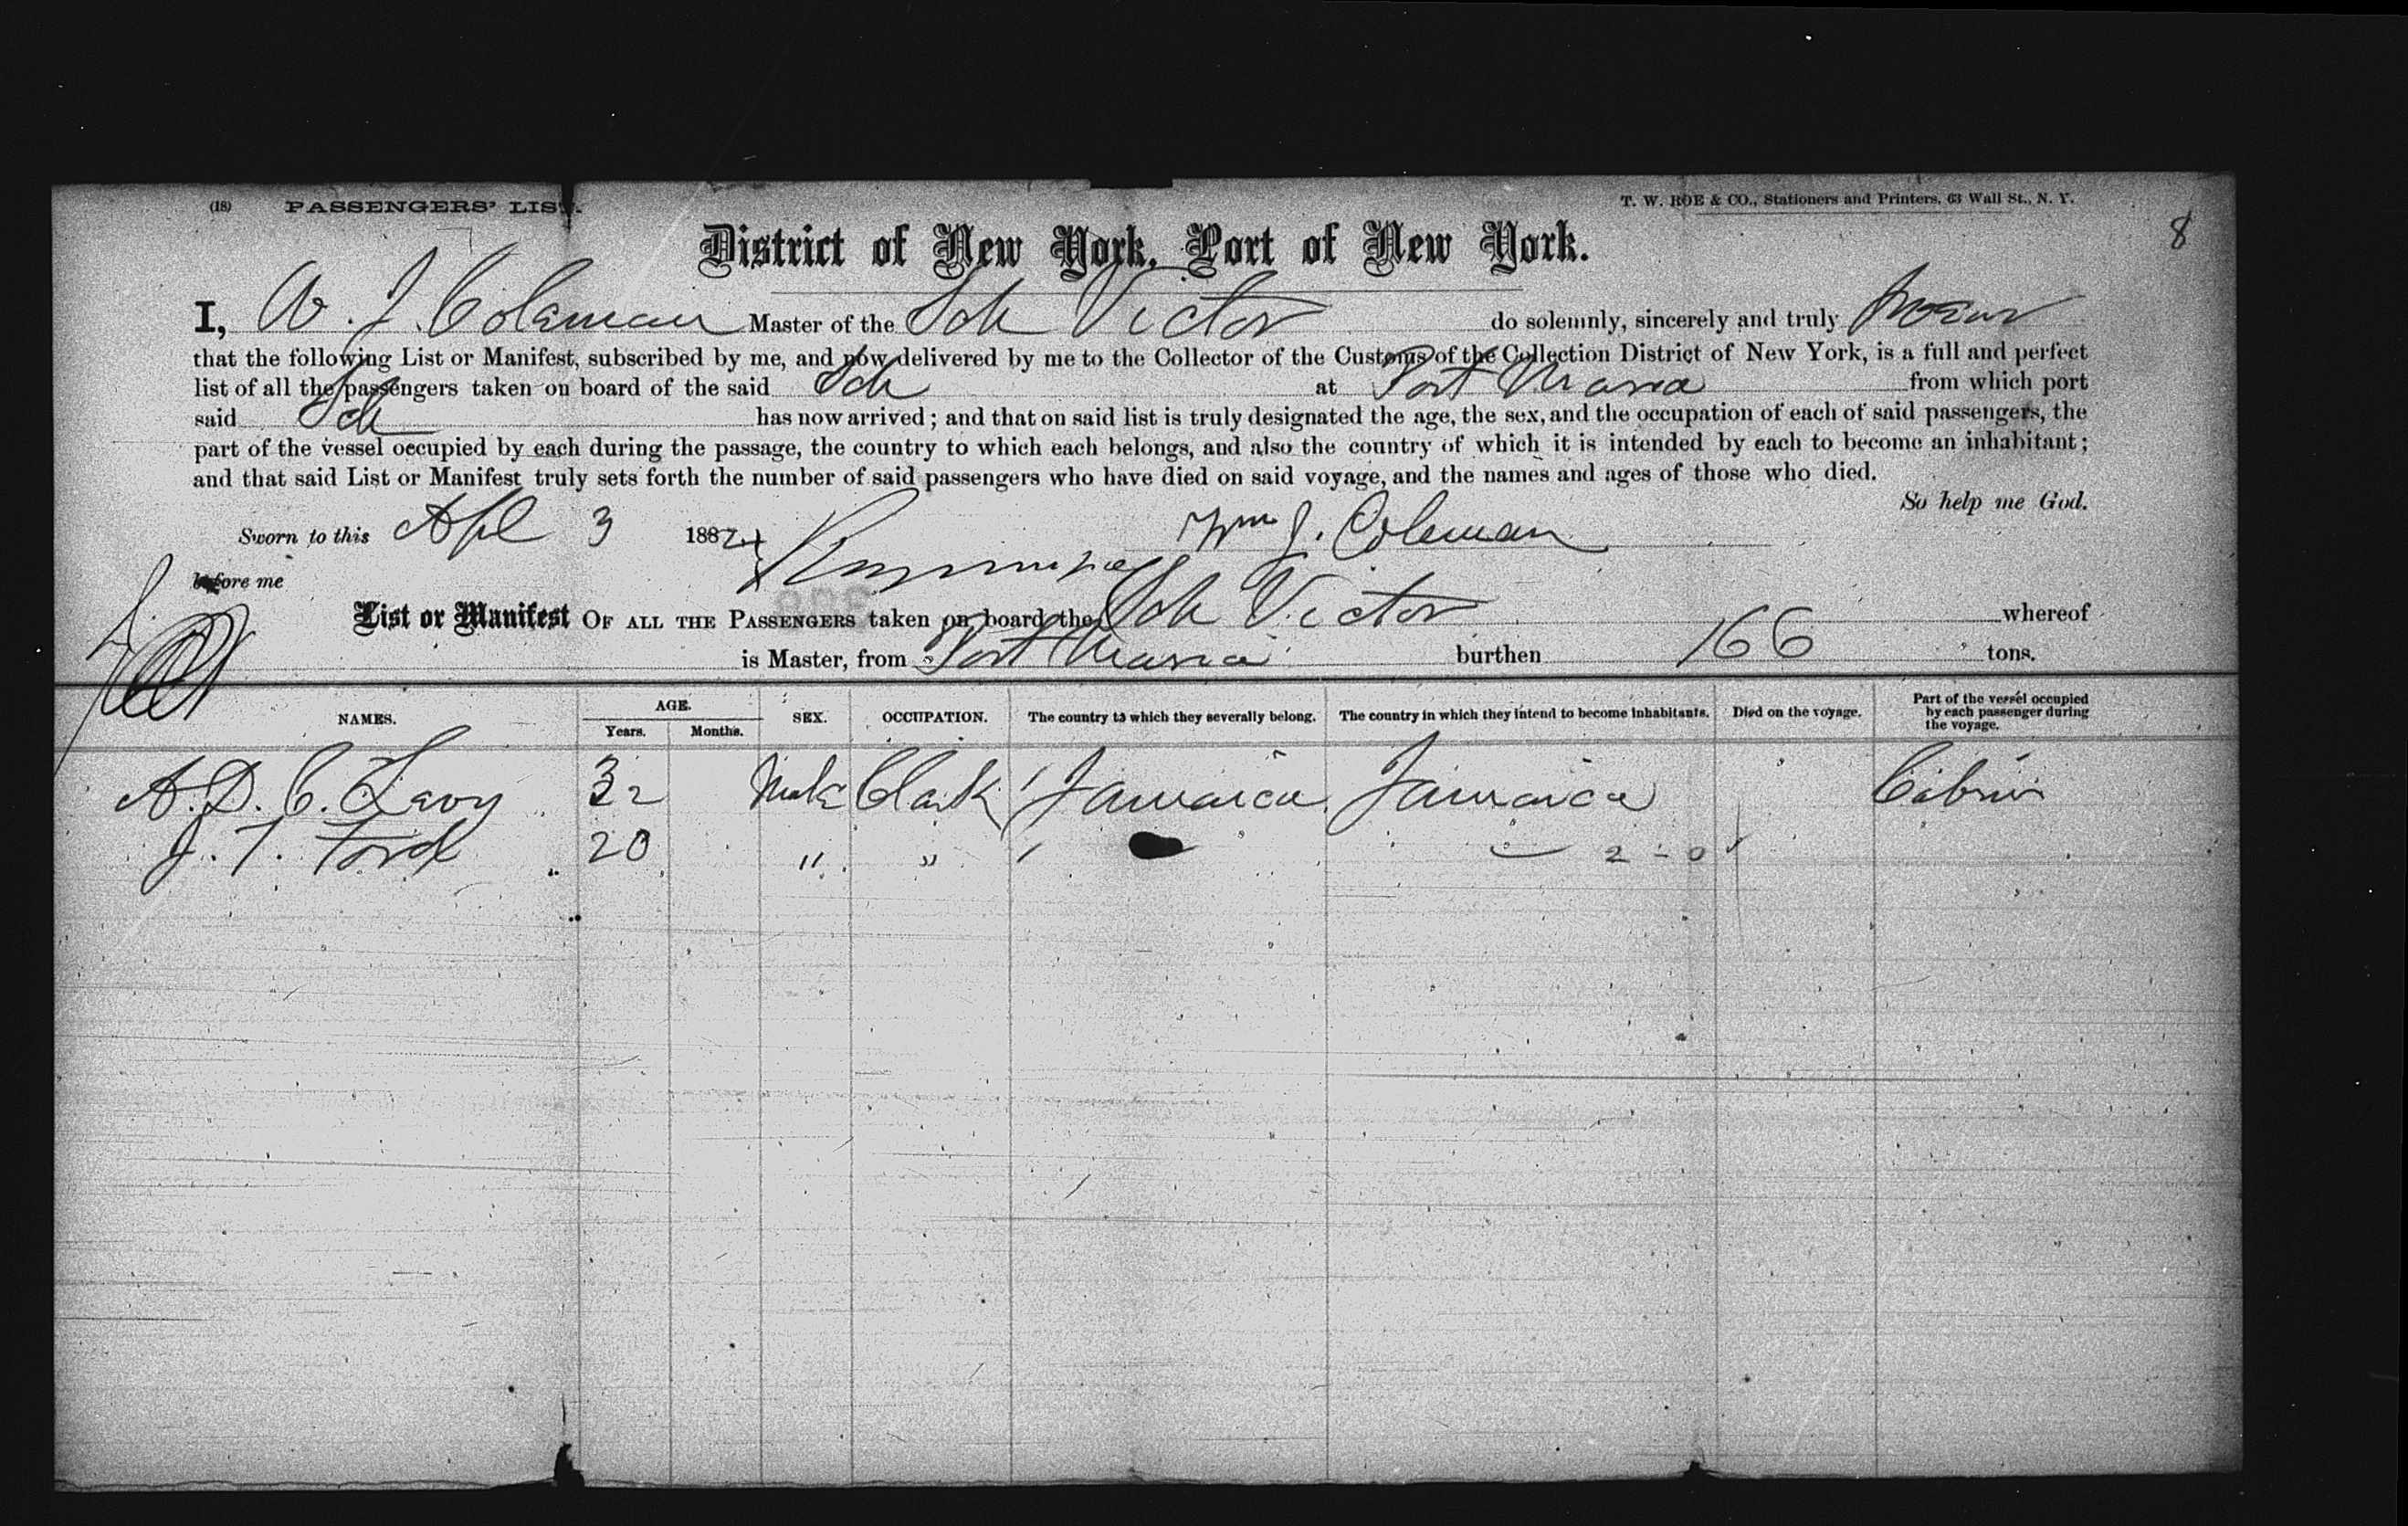 (18) PASSENGERS' LIST. T. W. ROE & CO., Stationers and Printers, 63 Wall St., N. Y.
8
District of New York, Port of New York.
I, W. J. Coleman Master of the Sch Victor do solemnly, sincerely and truly swear
that the following List or Manifest, subscribed by me, and now delivered by me to the Collector of the Customs of the Collection District of New York, is a full and perfect
list of all the passengers taken on board of the said Sch at Port Maria from which port
said Sch has now arrived; and that on said list is truly designated the age, the sex, and the occupation of each of said passengers, the
part of the vessel occupied by each during the passage, the country to which each belongs, and also the country of which it is intended by each to become an inhabitant;
and that said List or Manifest truly sets forth the number of said passengers who have died on said voyage, and the names and ages of those who died.
So help me God.
Sworn to this Apl 3 1882 Wm J. Coleman
before me
List or Manifest OF ALL THE PASSENGERS taken on board the Sch Victor whereof
is Master, from Port Maria burthen 166 tons.
NAMES. AGE. Years. Months. SEX. OCCUPATION. The country to which they severally belong. The country in which they intend to become inhabitants. Died on the voyage. Part of the vessel occupied by each passenger during the voyage.
A. D. C. Levy 32 Male Clark Jamaica Jamaica Cabin
J. T. Ford 20 " " 2 - 0